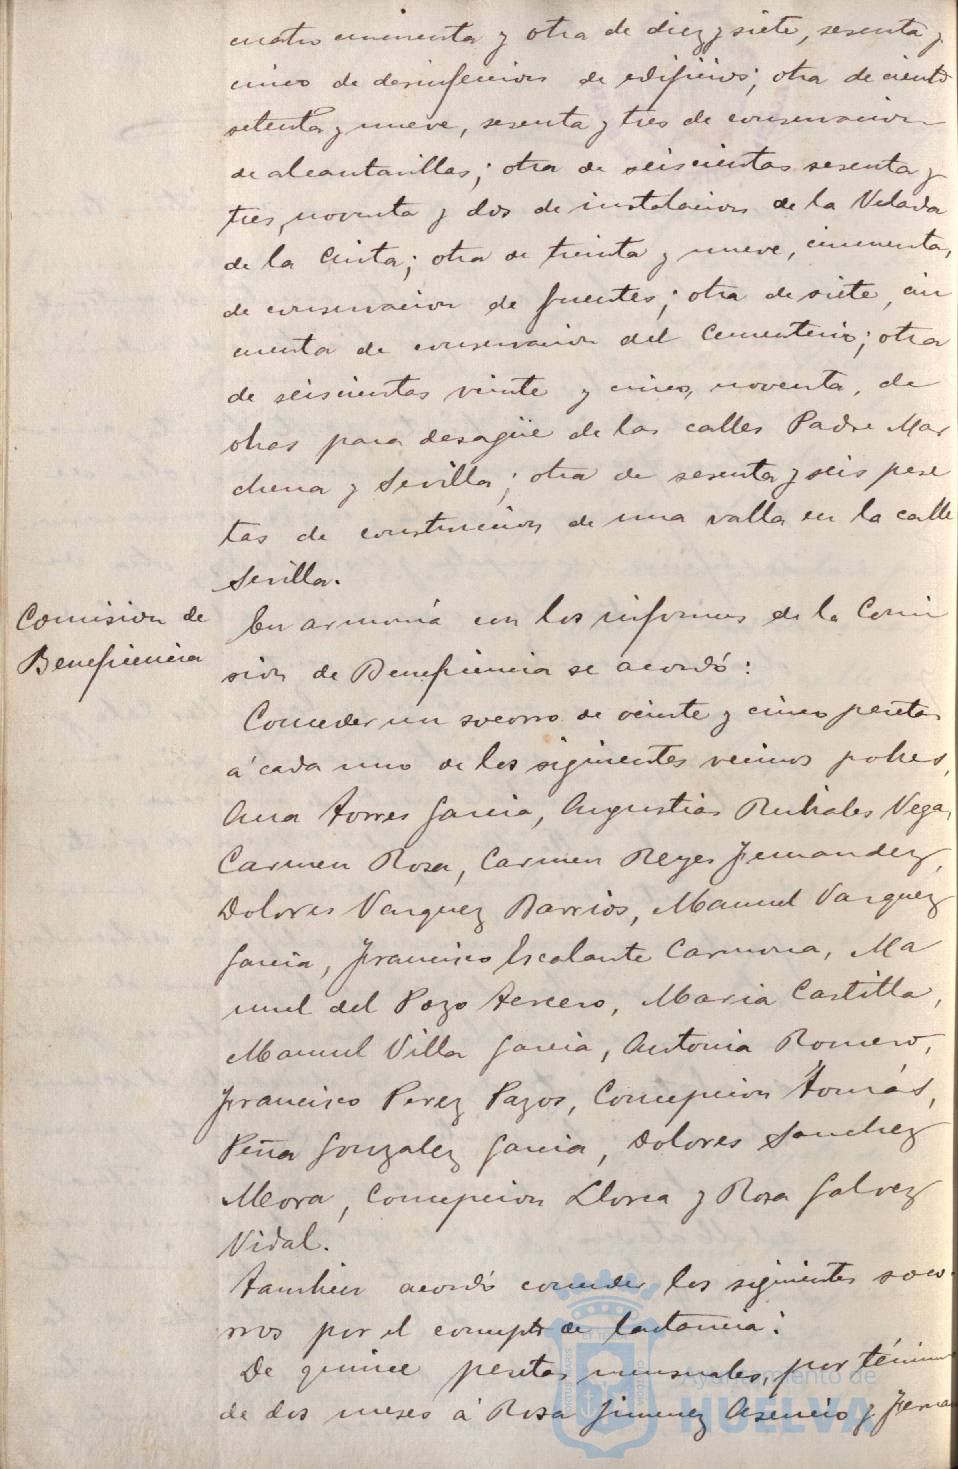 cuatro cincuenta y otra de diez y siete, sesenta y
cinco de desinfeccion de edificios; otra de ciento
setenta y nueve, sesenta y tres de conservacion
de alcantarillas; otra de seiscientas sesenta y
tres, noventa y dos de instalacion de la Velada
de la Cinta; otra de treinta y nueve, cincuenta,
de conservacion de fuentes; otra de siete, cin
cuenta de conservacion del Cementerio; otra
de seiscientas veinte y cinco, noventa, de
obras para desagüe de las calles Padre Mar
chena y Sevilla; otra de sesenta y seis pese
tas de construccion de una valla en la calle
Sevilla.
Comision de
Beneficencia
En armonía con los informes de la Comi
sion de Beneficencia se acordó:
Conceder un socorro de veinte y cinco pesetas
á cada uno de los siguientes vecinos pobres,
Ana Torres Garcia, Angustias Rubiales Vega,
Carmen Rosa, Carmen Reyes Fernandez,
Dolores Vazquez Barrios, Manuel Vazquez
Garcia, Francisco Escalante Carmona, Ma
nuel del Pozo Tercero, Maria Castilla,
Manuel Villa Garcia, Antonia Romero,
Francisco Perez Pazos, Concepcion Tomás,
Peña Gonzalez Garcia, Dolores Sanchez
Mora, Concepcion Llorca y Rosa Galvez
Vidal.
Tambien acordó conceder los siguientes soco-
rros por el concepto de lactancia:
De quince pesetas mensuales, por término
de dos meses á Rosa Jimenez Asencio y Fernan
Ayuntamiento de
HUELVA